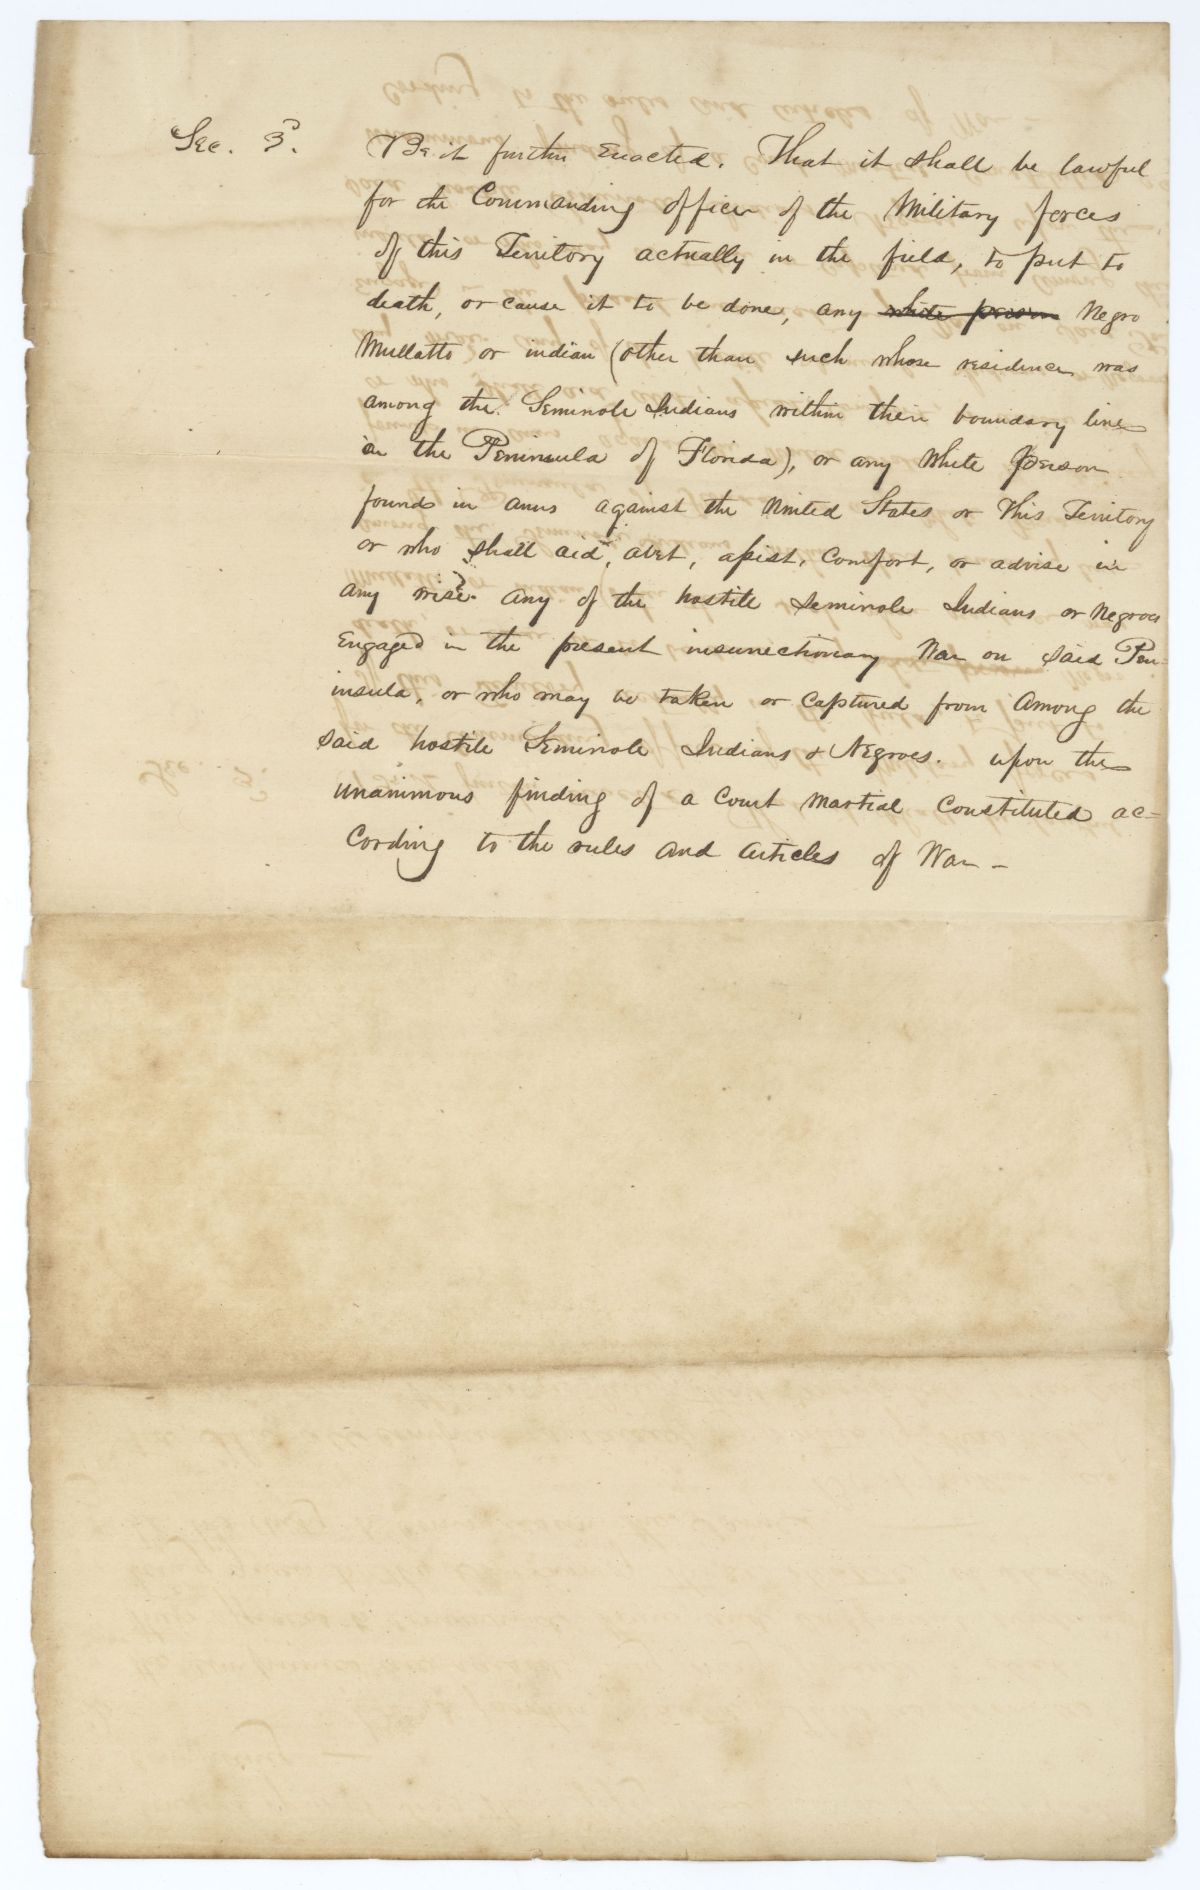 Sec. 3. Be it further Enacted. That it shall be lawful
for the Commanding officer of the Military forces
of this Territory actually in the field, to put to
death, or cause it to be done, any white person Negro
Mullatto or indian (other than such whose residence was
among the Seminole Indians within their boundary line
in the Peninsula of Florida), or any White person
found in arms against the United States or this Territory
or who shall aid, abet, assist, comfort, or advise in
any wise any of the hostile Seminole Indians or Negroes
Engaged in the present insurrectionary War on said Pen-
insula, or who may be taken or captured from among the
said hostile Seminole Indians & Negroes. upon the
unanimous finding of a Court Martial Constituted ac=
cording to the rules and articles of War –